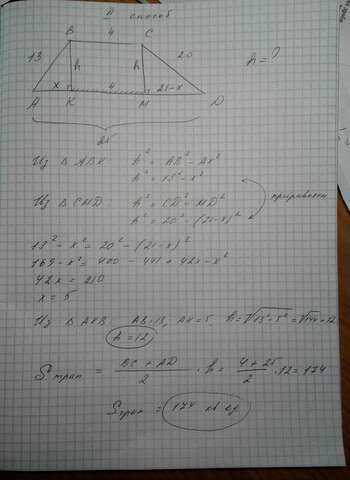 II способ
B 4 C
13 h h 20 h = ?
x 4 21-x
A K M D
25
Из Δ ABK: h² = AB² - AK²
h² = 13² - x²
Из Δ CMD: h² = CD² - MD²
приравняем
h² = 20² - (21-x)²
13² - x² = 20² - (21-x)²
169 - x² = 400 - 441 + 42x - x²
42x = 210
x = 5
Из Δ AKB AB=13, AK=5 h = √13²-5² = √144 = 12
h = 12
Sтрап = BC + AD / 2 · h = 4 + 25 / 2 · 12 = 174
Sтрап = 174 кв ед